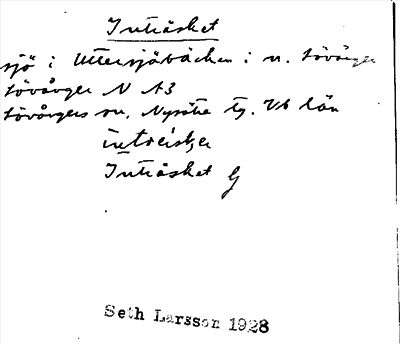 Inträsket
sjö i Uttersjöbäcken i n. Lövånger
Lövånger N A3
Lövångers sn, Nysätra tg. Vb län
intreisk̦e
Inträsket G
Seth Larsson 1928